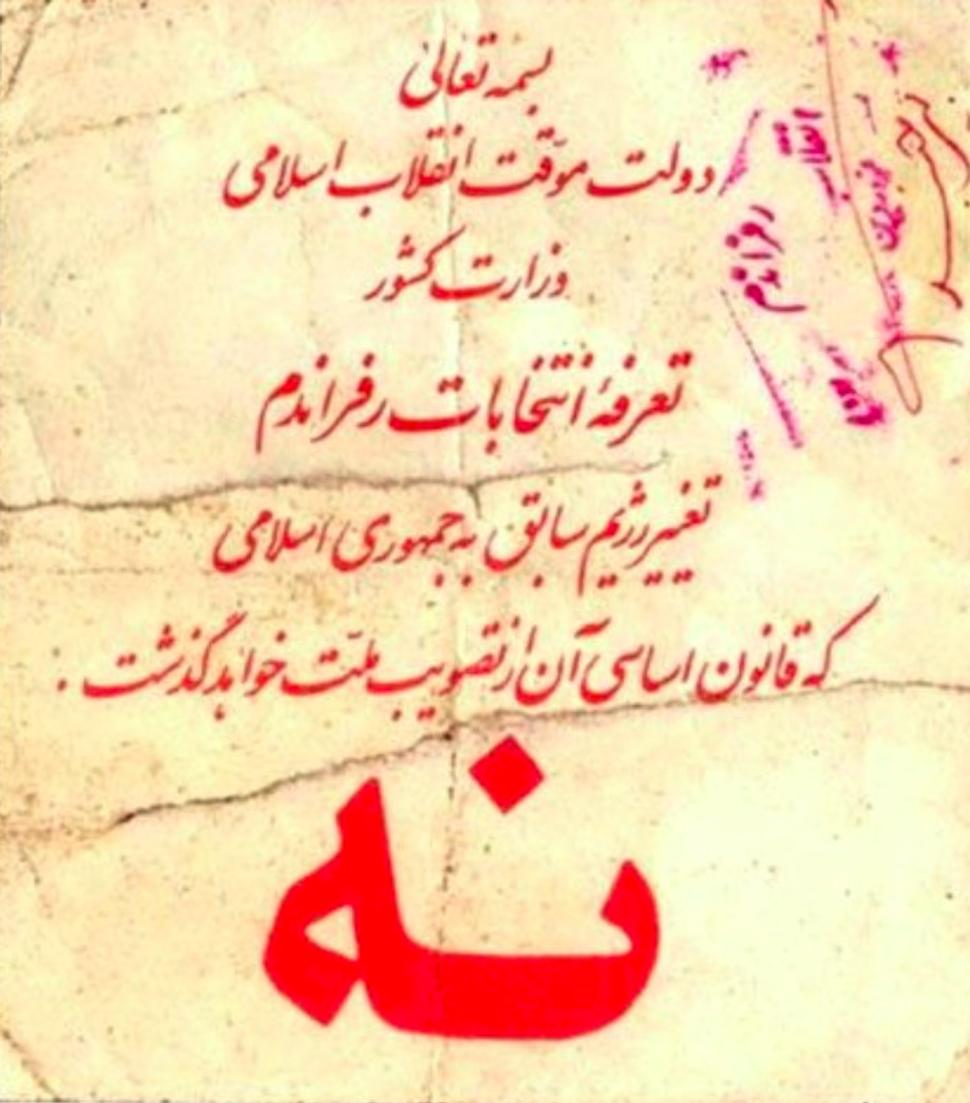 بسمه تعالی
دولت موقّت انقلاب اسلامی
وزارت کشور
تعرفهٔ انتخابات رفراندم
تغییر رژیم سابق به جمهوری اسلامی
که قانون اساسی آن از تصویب ملّت خواهد گذشت .
نه
رفراندم